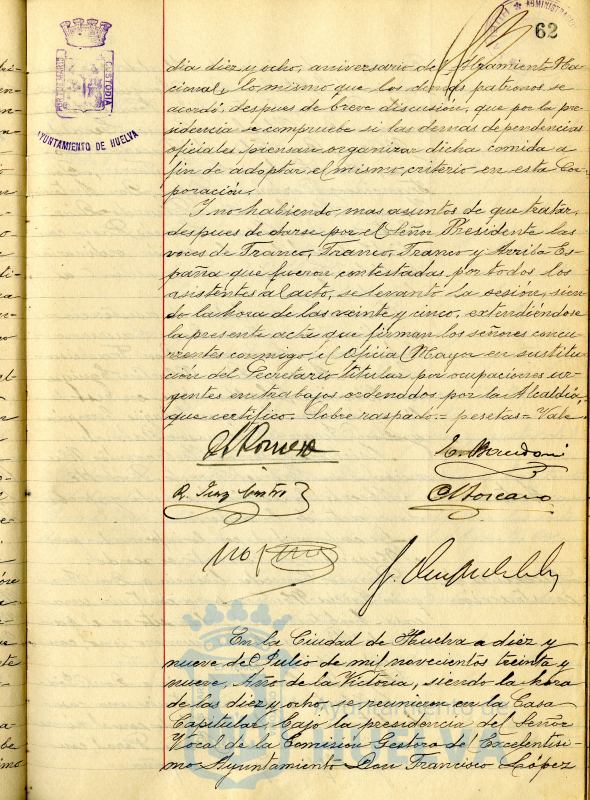 62
PORTUS MARIS
CUSTODIA
AYUNTAMIENTO DE HUELVA
dia diez y ocho, aniversario del Alzamiento Na-
cional, lo mismo que los demás patronos, se
acordó, despues de breve discusión, que por la pre-
sidencia se compruebe si las demas dependencias
oficiales piensan organizar dicha comida a
fin de adoptar el mismo criterio en esta Cor-
poración.
Y no habiendo mas asuntos de que tratar,
despues de darse por el Señor Presidente las
voces de Franco, Franco, Franco y Arriba Es-
paña que fueron contestadas por todos los
asistentes al acto, se levantó la sesión, sien-
do la hora de las veinte y cinco, extendiéndose
la presente acta que firman los señores concu-
rrentes conmigo, el Oficial Mayor en sustitu-
ción del Secretario titular por ocupaciones ur-
gentes en trabajos ordenados por la Alcaldía,
que certifico. Sobre raspado = pesetas = Vale
En la Ciudad de Huelva a diez y
nueve de Julio de mil novecientos treinta y
nueve, Año de la Victoria, siendo la hora
de las diez y ocho, se reunieron en la Casa
Capitular, bajo la presidencia del Señor
Vocal de la Comision Gestora del Excelentisi-
mo Ayuntamiento Don Francisco López
Ayuntamiento de
HUELVA